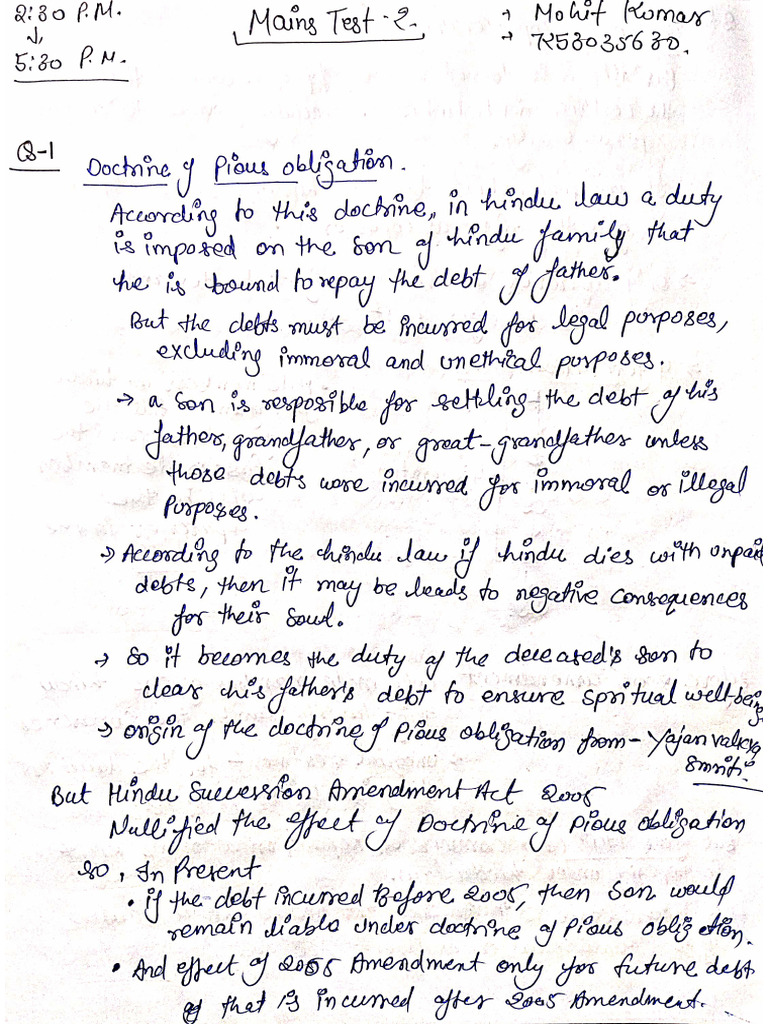 2:30 P.M.
↓
5:30 P.M.
Mains Test-2.
→ Mohit Kumar
→ 7253035630.
Q-1 Doctrine of Pious obligation.
According to this doctrine, in hindu law a duty
is imposed on the son of hindu family that
he is bound to repay the debt of father.
But the debts must be incurred for legal purposes,
excluding immoral and unethical purposes.
→ a son is resposible for settling the debt of his
father, grandfather, or great-grandfather unless
those debts wore incurred for immoral or illegal
Purposes.
→ According to the hindu law if hindu dies with unpaid
debts, then it may be leads to negative consequences
for their soul.
→ So it becomes the duty of the deceased's son to
clear his father's debt to ensure spritual well-being
→ origin of the doctrine of Pious obligation from - Yajanvalkya
Smriti.
But Hindu Succession Amendment Act 2005
Nullified the effect of Doctrine of pious obligation
So, In Present
• if the debt incurred Before 2005, then son would
remain liable under doctrine of Pious obligation.
• And effect of 2005 Amendment only for future debt
that is incurred after 2005 Amendment.